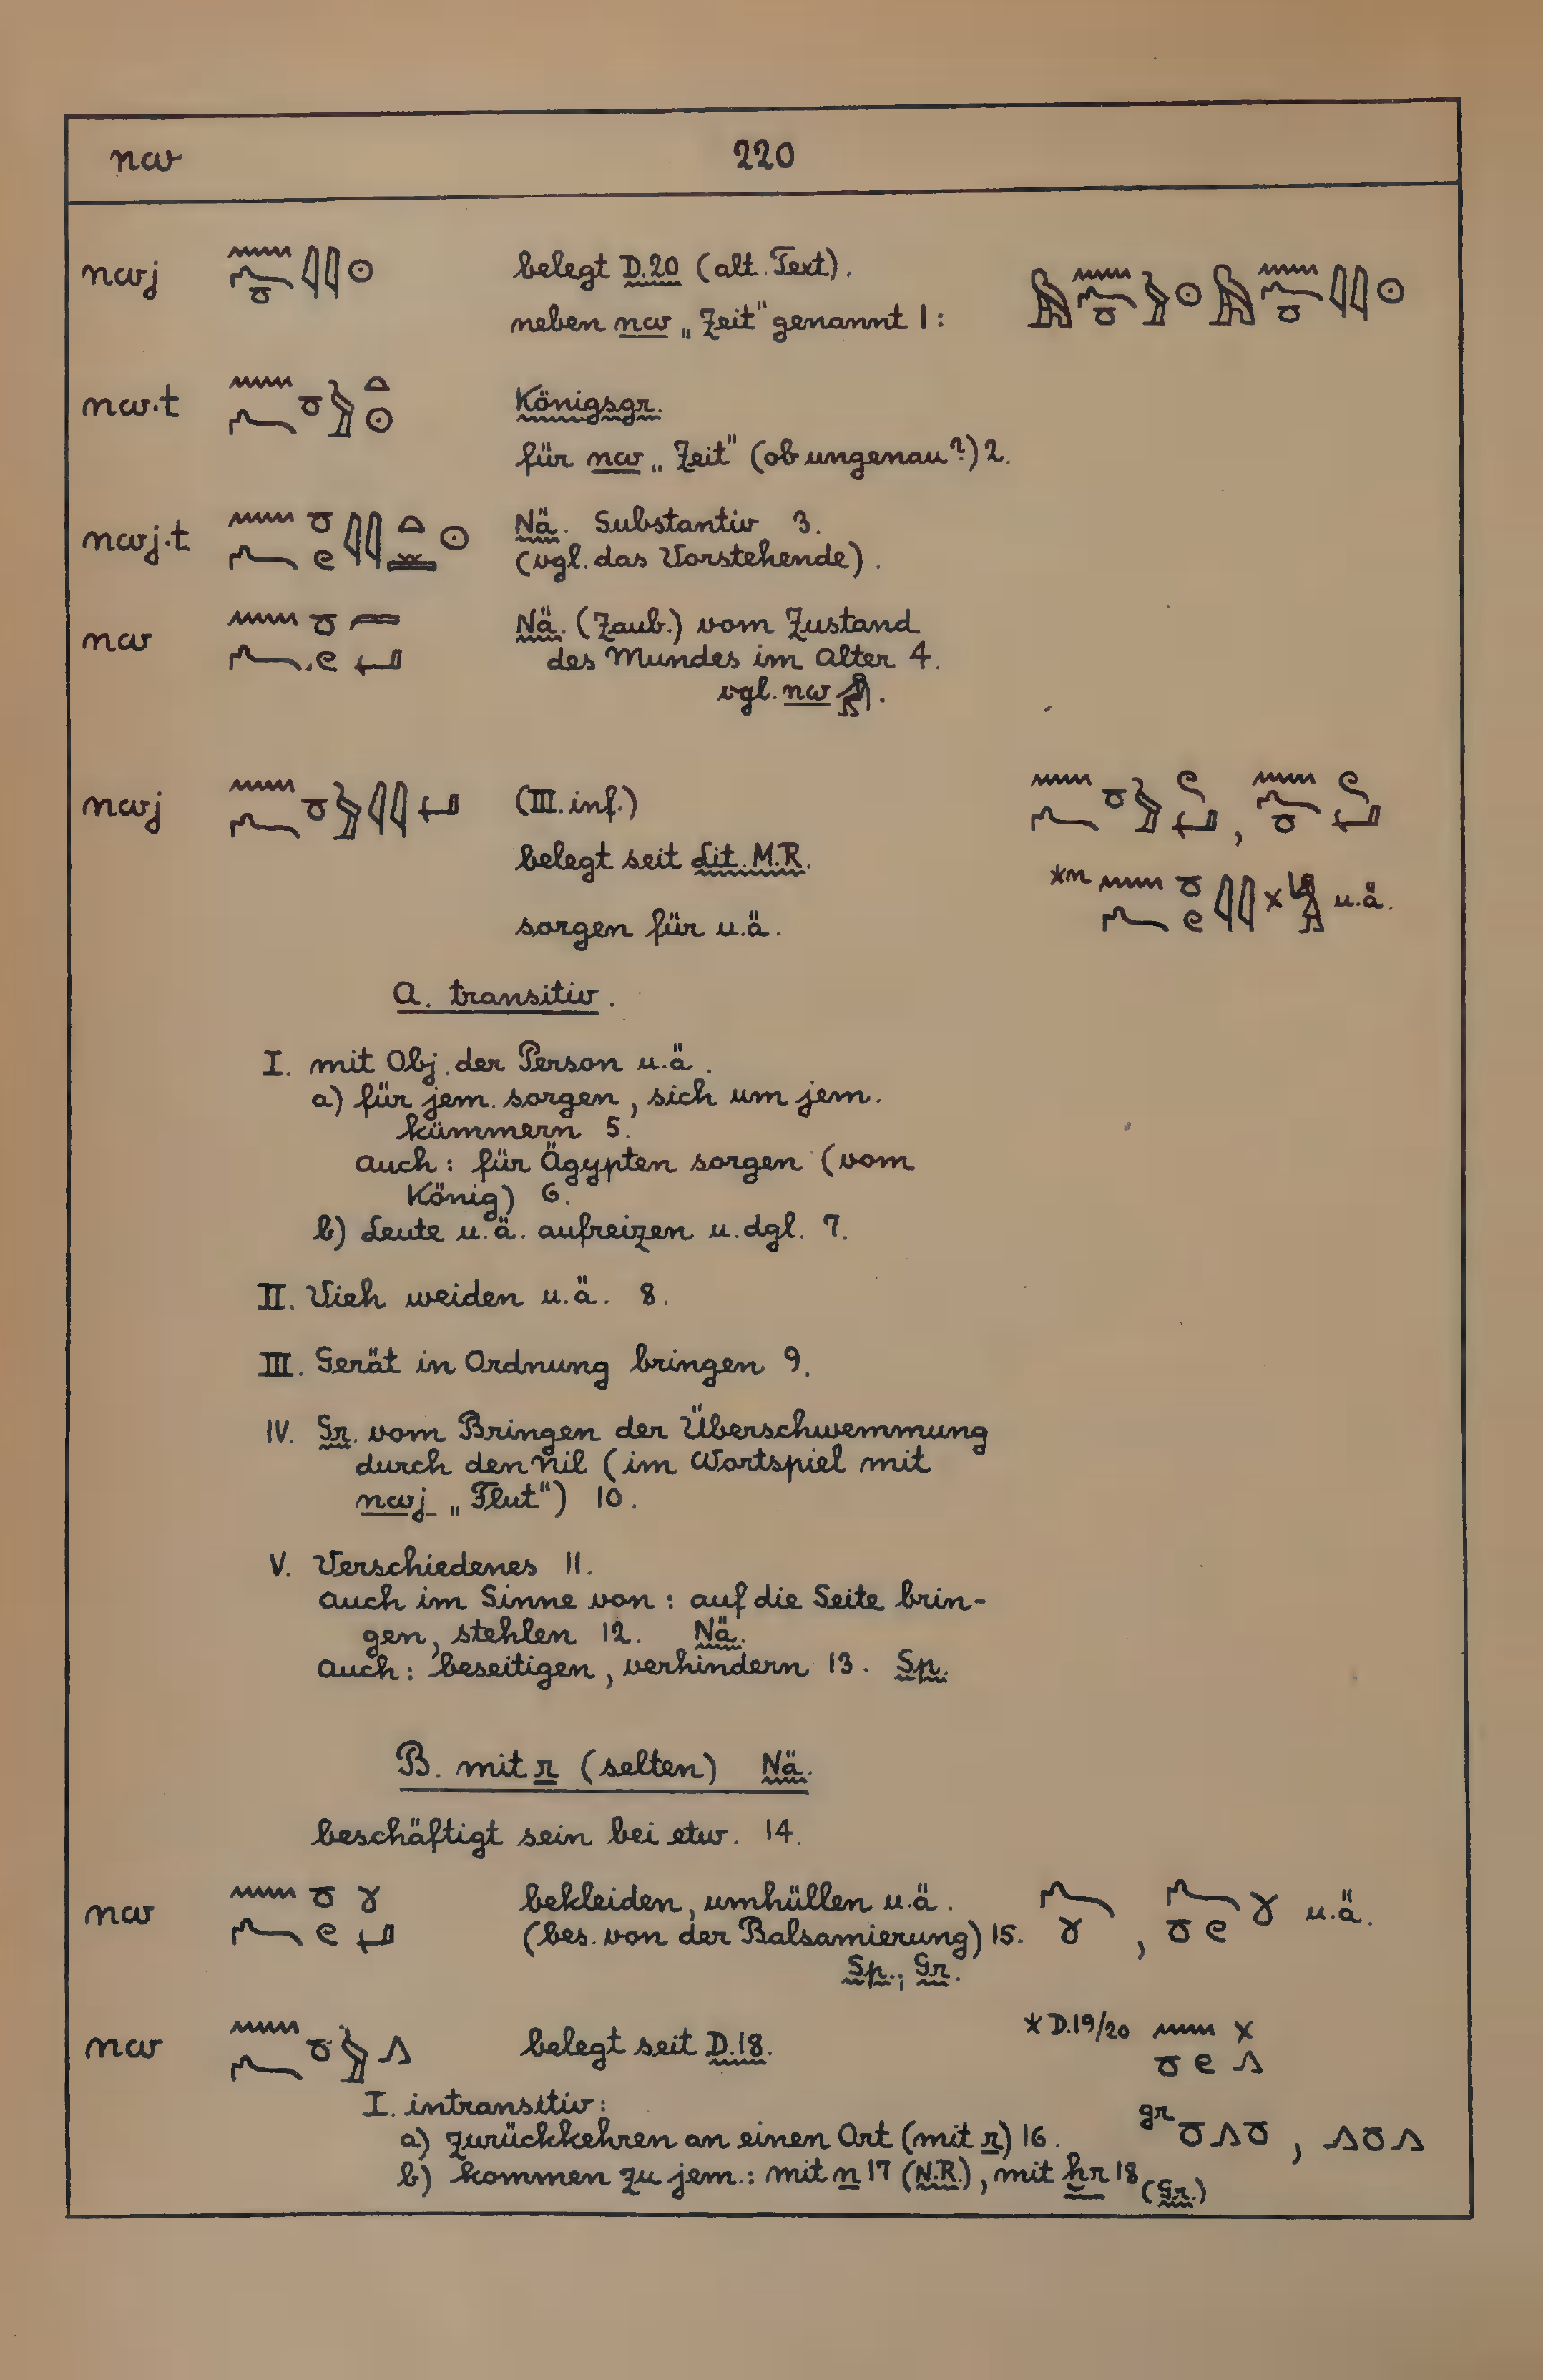 nw 220
nwj belegt D.20 (alt. Text).
neben nw „Zeit" genannt 1:
nw.t Königsgr.
für nw „Zeit" (ob ungenau?) 2.
nwj.t Nä. Substantiv 3.
(vgl. das Vorstehende).
nw Nä. (Zaub.) vom Zustand
des Mundes im Alter 4.
vgl. nw.
nwj (III. inf.)
belegt seit Lit. M.R.
*n u.ä.
sorgen für u.ä.
A. transitiv.
I. mit Obj. der Person u.ä.
a) für jem. sorgen, sich um jem.
kümmern 5.
auch: für Ägypten sorgen (vom
König) 6.
b) Leute u.ä. aufreizen u. dgl. 7.
II. Vieh weiden u.ä. 8.
III. Gerät in Ordnung bringen 9.
IV. Gr. vom Bringen der Überschwemmung
durch den Nil (im Wortspiel mit
nwj „Flut") 10.
V. Verschiedenes 11.
auch im Sinne von: auf die Seite brin-
gen, stehlen 12. Nä.
auch: beseitigen, verhindern 13. Sp.
B. mit r (selten) Nä.
beschäftigt sein bei etw. 14.
nw bekleiden, umhüllen u.ä. , u.ä.
(bes. von der Balsamierung) 15.
Sp.; Gr.
nw belegt seit D.18. * D.19/20
I. intransitiv:
a) zurückkehren an einen Ort (mit r) 16. gr ,
b) kommen zu jem.: mit n 17 (N.R.), mit ḫr 18 (Gr.)